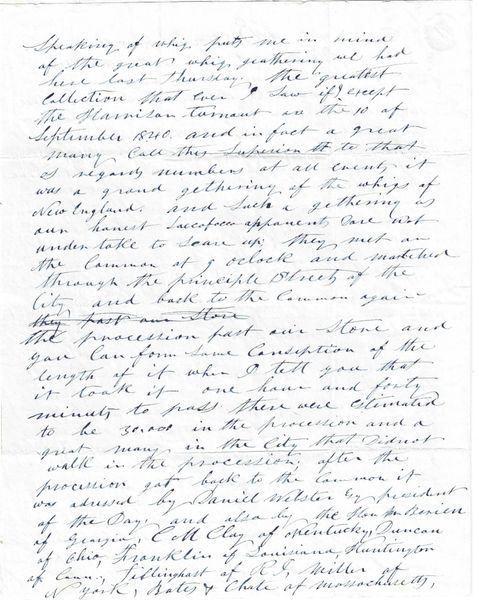 Speaking of whigs puts me in mind
of the great whig geathering we had
here last Thursday. the greatest
Collection that ever I saw if I except
the Harrison turnout on the 10 of
September 1840. and in fact a great
many Call this Superior to that
as regards numbers at all events it
was a grand gethering of the whigs of
New England. and Such a gethering as
our honest Locofoco apponents Dare not
undertake to Scare up; they met on
the Common at 9 oclock and matched
through the principle Streets of the
City and back to the Common again
they past our Store
the procession past our Store and
you Can form Some Conseption of the
length of it when I tell you that
it took it one hour and forty
minuts to pass there were estimated
to be 30,000 in the procession and a
great many in the City that Did not
walk in the procession; after the
procession got back to the Common it
was adresed by Daniel Webster Esq president
of the Day. and also by the Hon Mr Berrien
of Georgia, C M Clay of Kentucky, Duncan
of Ohio, Franklin of Louisiana, Huntington
of Conn., Tillinghast of R.I, Miller of
N York, Bates & Chate of Massachusetts,